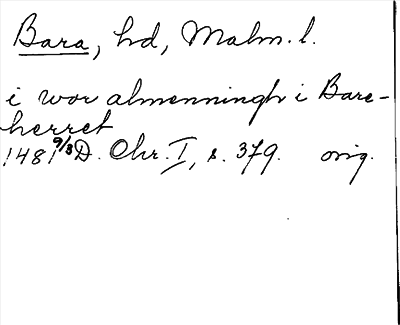 Bara, hd, Malm. l.
i wor almenningh i Bare-
herret
1481 9/3 D. Chr. I, s. 379. orig.